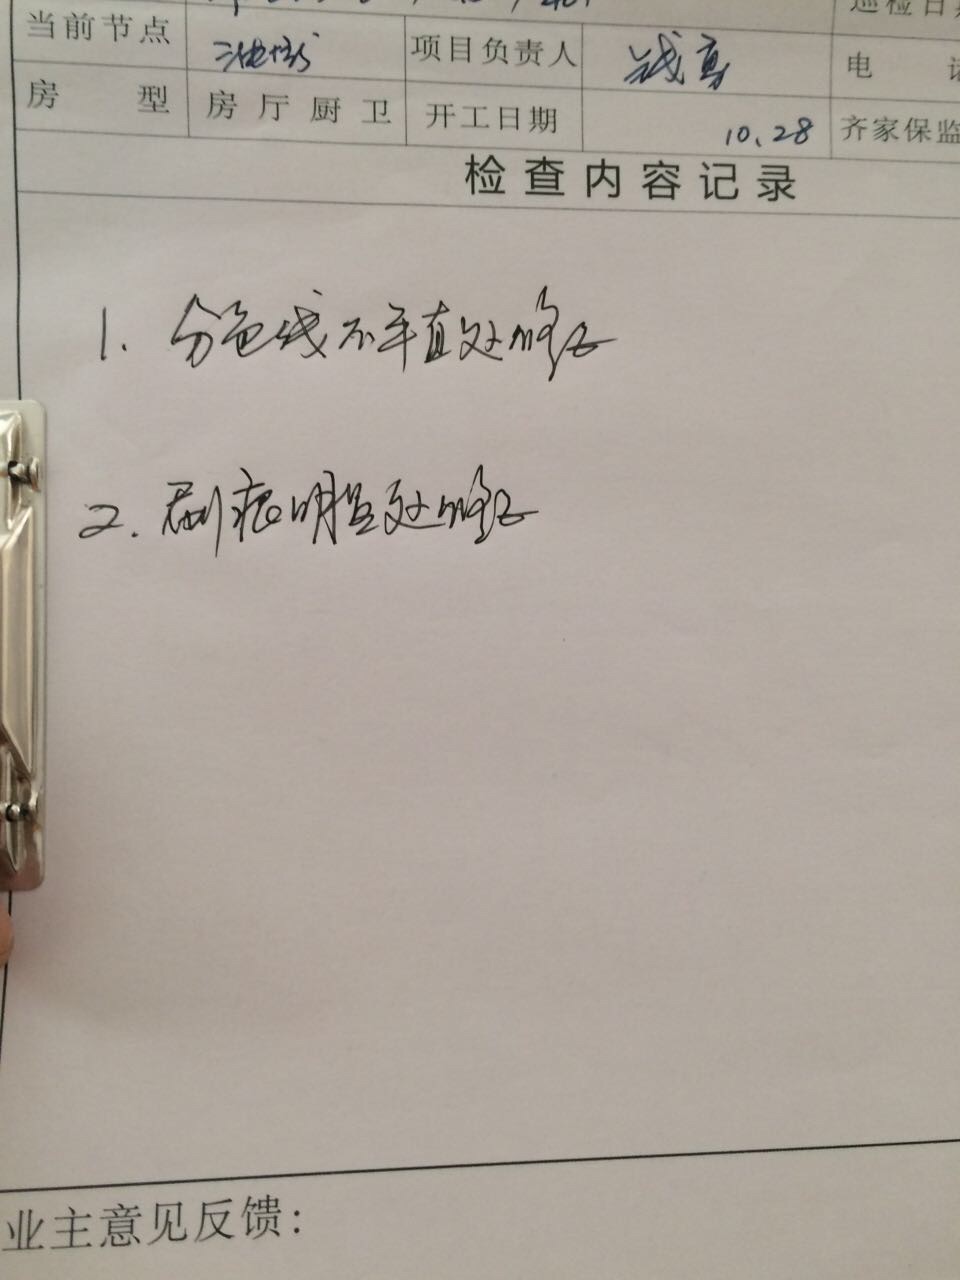 巡检日期
当前节点 油漆 项目负责人 电 话
房 型 房 厅 厨 卫 开工日期 10.28 齐家保监
检查内容记录
1. 分色线不平直处修正
2. 刷痕明显处修正
业主意见反馈：